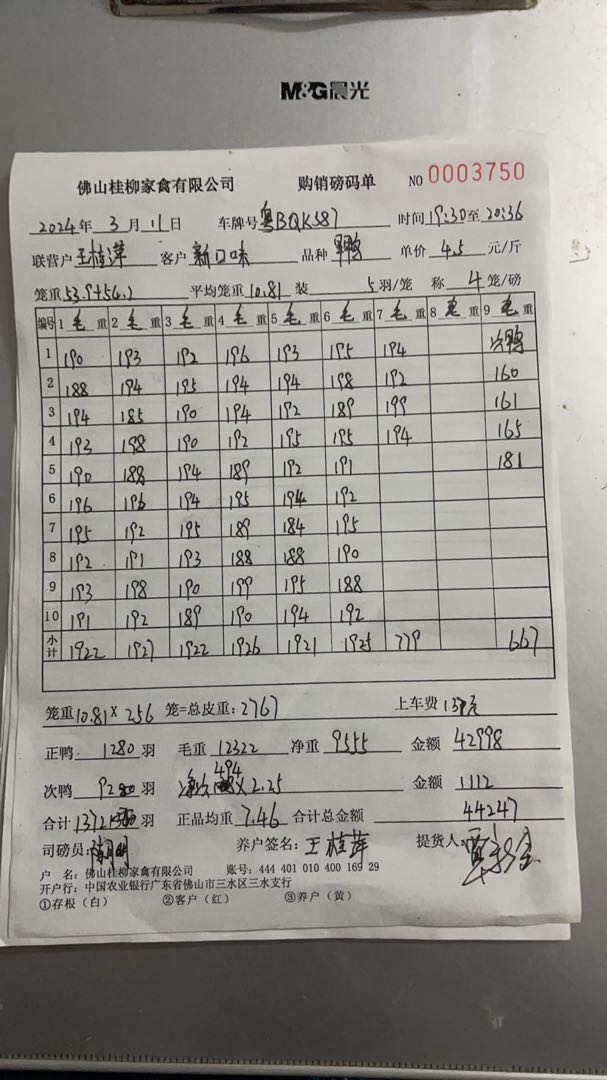 M&G晨光
佛山桂柳家禽有限公司 购销磅码单 NO 0003750
2024年 3 月 11 日 车牌号 粤BQK587 时间 19:30至20:36
联营户 王桂萍 客户 新口味 品种 单价 4.5 元/斤
笼重 53.9+54.2 平均笼重 10.81 装 5 羽/笼 称 4 笼/磅
编号 1 毛 重 2 毛 重 3 毛 重 4 毛 重 5 毛 重 6 毛 重 7 毛 重 8 毛 重 9 毛 重
1 190 193 192 196 193 195 194 次鸭
2 188 194 195 194 194 198 192 160
3 194 185 190 194 192 189 199 161
4 193 198 190 192 195 195 194 165
5 190 188 194 189 192 191 181
6 196 196 194 195 194 192
7 195 192 195 189 184 195
8 192 191 193 188 188 190
9 193 198 190 199 195 188
10 191 192 189 190 194 192
小计 1922 1927 1922 1926 1921 1925 779 667
笼重 10.81× 256 笼=总皮重: 2767 上车费
正鸭 1280 羽 毛重 12322 净重 9555 金额 42998
次鸭 92 羽 494 ×2.25 金额 1112
合计 1372 羽 正品均重 7.46 合计总金额 44247
司磅员: 养户签名: 王桂萍 提货人:
户 名: 佛山桂柳家禽有限公司 账号: 444 401 010 400 169 29
开户行: 中国农业银行广东省佛山市三水区三水支行
①存根(白) ②客户(红) ③养户(黄)